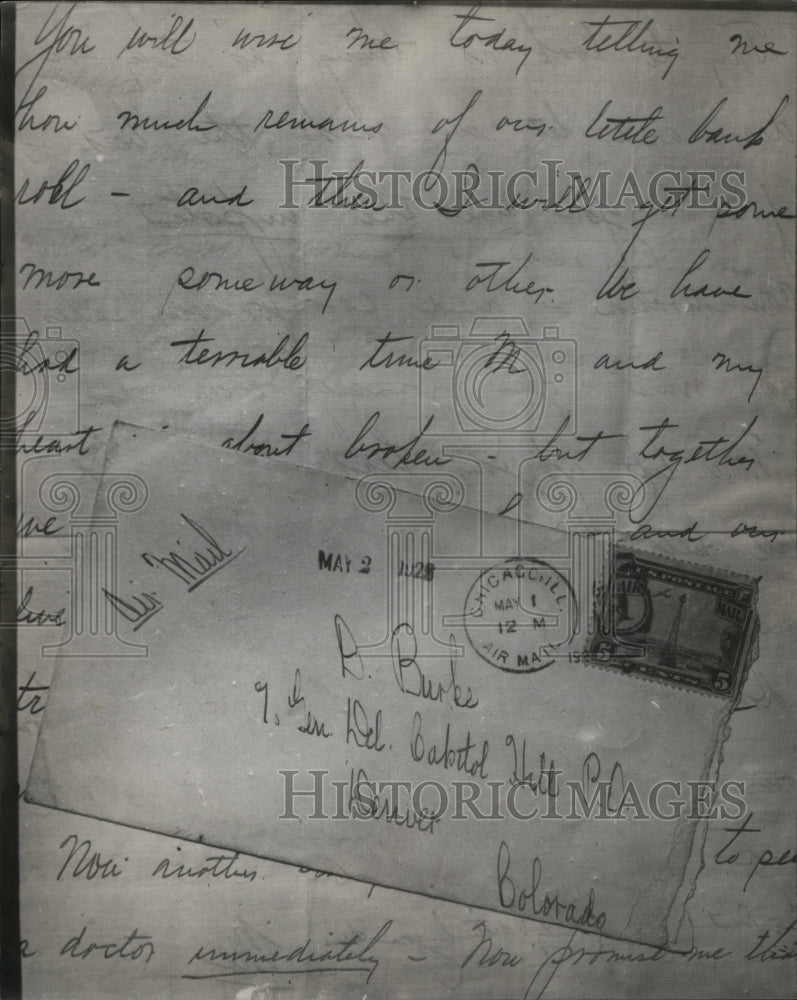 You will wire me today telling me
how much remains of our little bank
roll - and then I will get some
more someway or other. We have
had a terriable time M and my
heart about broken - but together
we and our
live
Air Mail
MAY 2 1929
CHICAGO, ILL.
MAY 1
12 M
AIR MAIL
U.S. POSTAGE
AIR MAIL
5 CENTS 5
D. Burke
% Gen. Del. Capitol Hill P.O.
Denver
Colorado
Now another to see
a doctor immediately - Now promise me this
HISTORICIMAGES
HISTORICIMAGES